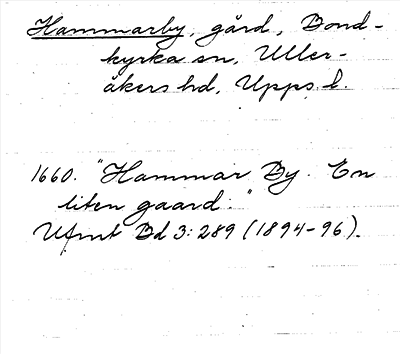 Hammarby, gård, Bond-
kyrka sn, Uller-
åkers hd, Upps. l.
1660. "Hammar By. En
liten gaard."
Ufmt Bd 3:289 (1894-96).